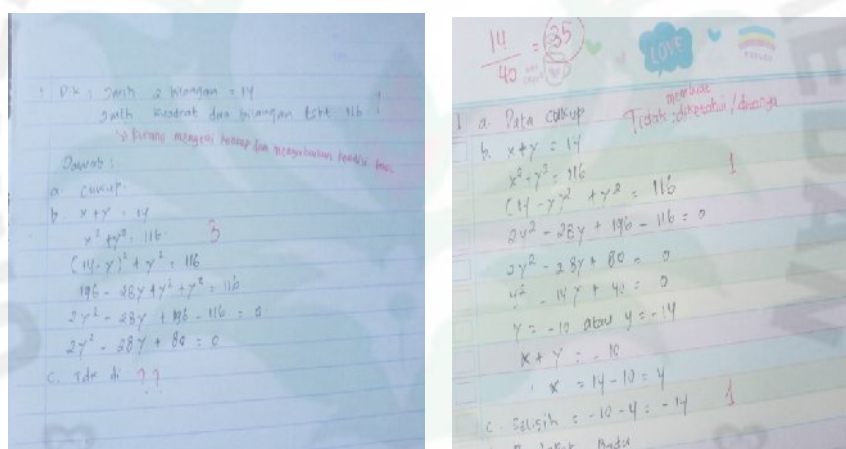 1 Dik : Jmlh 2 bilangan = 14
Jmlh kuadrat dua bilangan tsbt 116 1
Kurang mengerti konsep dan mengabaikan kondisi
Jawab :
a cukup.
b. x + y = 14
x² + y² = 116 3
(14 - y)² + y² = 116
196 - 28y + y² + y² = 116
2y² - 28y + 196 - 116 = 0
2y² - 28y + 80 = 0
c. Tdk di ??
14/40 = 35
LOVE
1 a. Data cukup
Tidak membuat diketahui / ditanya
b. x + y = 14
x² - y² = 116 1
(14 - y)² + y² = 116
2y² - 28y + 196 - 116 = 0
2y² - 28y + 80 = 0
y² - 14y + 40 = 0
y = -10 atau y = -14
x + y = - 10
x = 14 - 10 = 4
c. Selisih = -10 - 4 = -14 1